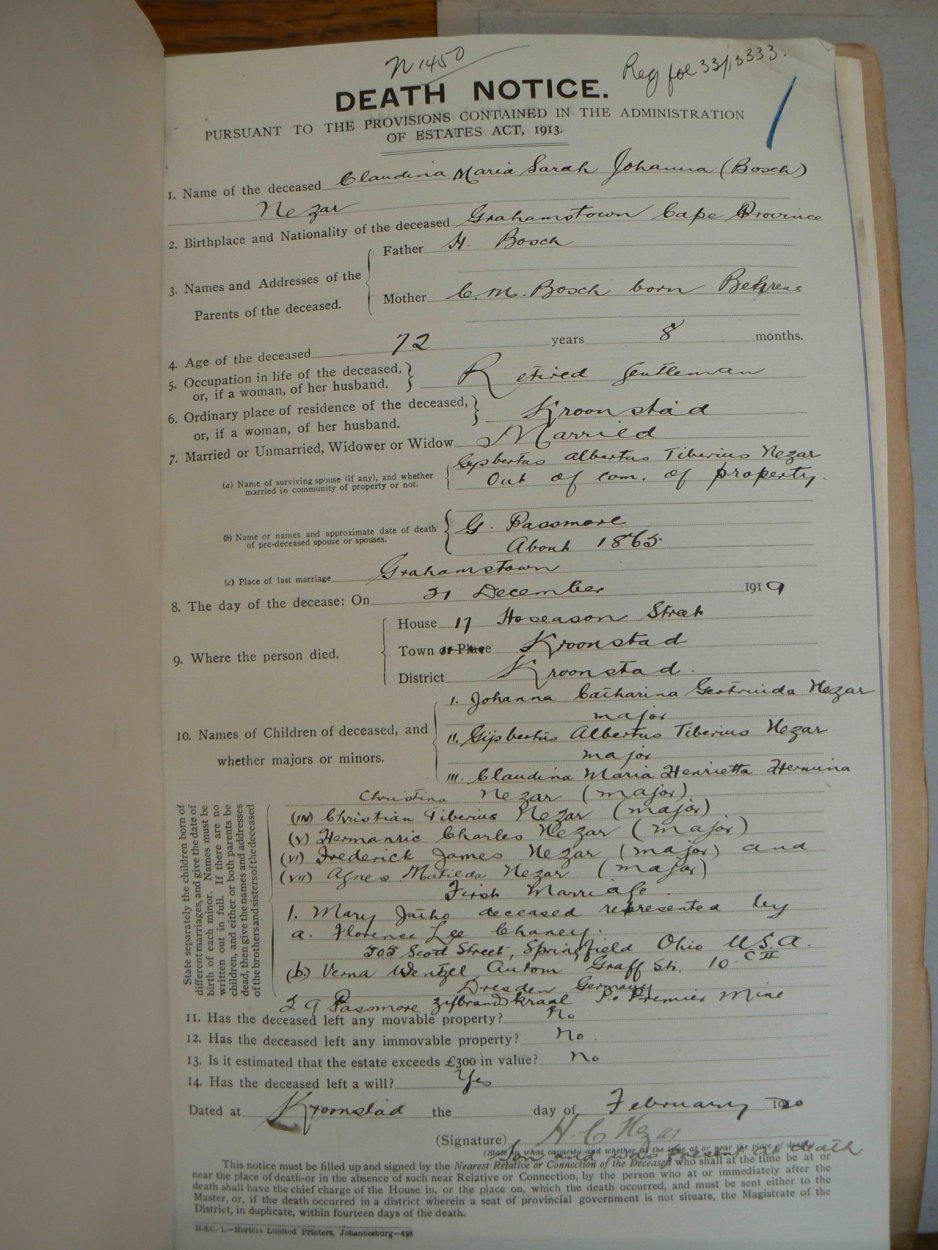 N 1450
Reg fol 33/13333.
DEATH NOTICE.
PURSUANT TO THE PROVISIONS CONTAINED IN THE ADMINISTRATION
OF ESTATES ACT, 1913.
1. Name of the deceased Claudina Maria Sarah Johanna (Bosch)
Nezar
2. Birthplace and Nationality of the deceased Grahamstown Cape Province
3. Names and Addresses of the Parents of the deceased.
Father H. Bosch
Mother C. M. Bosch born Behrens
4. Age of the deceased 72 years 8 months.
5. Occupation in life of the deceased, or, if a woman, of her husband. Retired gentleman
6. Ordinary place of residence of the deceased, or, if a woman, of her husband. Kroonstad
7. Married or Unmarried, Widower or Widow Married
(a) Name of surviving spouse (if any), and whether married in community of property or not. Gysbertus Albertus Tiberius Nezar
Out of com. of property.
(b) Name or names and approximate date of death of pre-deceased spouse or spouses. G. Passmore
About 1865
(c) Place of last marriage Grahamstown
8. The day of the decease: On 21 December 1919
9. Where the person died.
House 17 Hoseason Street
Town or Place Kroonstad
District Kroonstad.
10. Names of Children of deceased, and whether majors or minors.
1. Johanna Catharina Gertruida Nezar
major
11. Gipbertus Albertus Tiberius Nezar
major
111. Claudina Maria Henrietta Hermina
Christina Nezar (major)
(IV) Christian Tiberius Nezar (major)
(V) Hermanric Charles Nezar (major)
(VI) Frederick James Nezar (major) and
(VII) Agnes Matilda Nezar (major)
First Marriage
1. Mary Jatho deceased represented by
a. Florence Lee Chaney.
505 Scott Street, Springfield Ohio U.S.A.
(b.) Verna Wentzel Autom Graff Str. 10 C II
Dresden Germany
2 G Passmore Zybrandkraal P.o Premier Mine
State separately the children born of different marriages, and give the date of birth of each minor. Names must be written out in full. If there are no children, and either or both parents be dead, then give the names and addresses of the brothers and sisters of the deceased
11. Has the deceased left any movable property? No
12. Has the deceased left any immovable property? No
13. Is it estimated that the estate exceeds £300 in value? No
14. Has the deceased left a will? Yes
Dated at Kroonstad the day of February 1920
(Signature) H. C Nezar
(State in what capacity and whether at the time at or near the place of death)
Son and was present at death
This notice must be filled up and signed by the Nearest Relative or Connection of the Deceased who shall at the time be at or
near the place of death-or in the absence of such near Relative or Connection, by the person who at or immediately after the
death shall have the chief charge of the House in, or the place on, which the death occurred, and must be sent either to the
Master, or, if the death occurred in a district wherein a seat of provincial government is not situate, the Magistrate of the
District, in duplicate, within fourteen days of the death.
H.S.C. 1.—Hortors Limited Printers, Johannesburg—